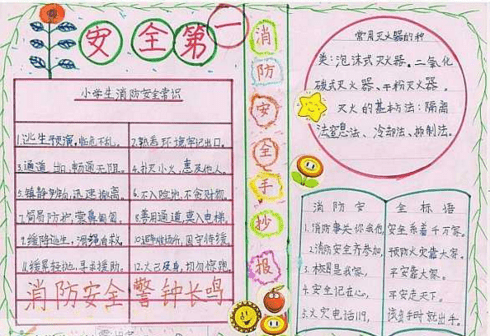 安全第一
小学生消防安全常识
1.逃生预演,临危不乱。
2.熟悉环境,牢记出口。
3.通道出口,畅通无阻。
4.扑灭小火,惠及他人。
5.镇静辨向,迅速撤离。
6.不入险地,不贪财物。
7.简易防护,蒙鼻匍匐。
8.善用通道,莫入电梯。
9.缓降逃生,滑绳自救。
10.避难场所,固守待援。
11.缓晃轻抛,寻求援助。
12.火已及身,切勿惊跑。
消防安全 警钟长鸣
消防安全手抄报
常见灭火器的种
类:泡沫式灭火器、二氧化
碳式灭火器、干粉灭火器。
灭火的基本方法:隔离
法、窒息法、冷却法、抑制法。
消防安全标语
1.消防事关你我他,安全系着千万家。
2.消防安全齐参加,预防火灾靠大家。
平安靠大家。
4.安全记在心,平安走天下。
5.火灾电话119,